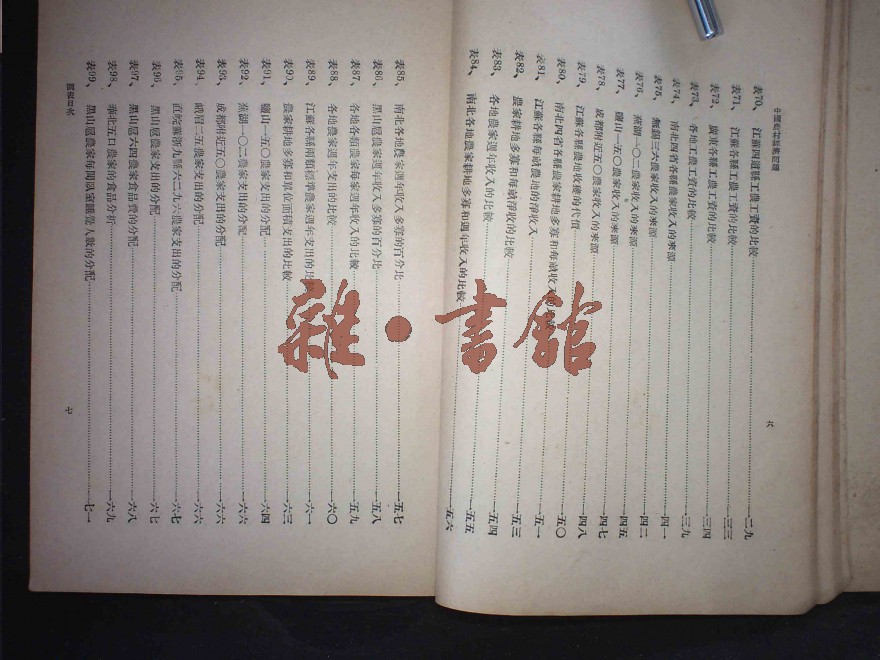 表70、江蘇四週縣工農工資的比較……一二九
表71、江蘇各縣工農工資的比較……一三三
表72、廣東各縣工農工資的比較……一三四
表73、各地工農工資的比較……一三九
表74、南北四省各縣農家收入的來源……一四一
表75、無錫三六農家收入的來源……一四二
表76、蕪湖一〇二農家收入的來源
表77、鹽山一五〇農家收入的來源……一四五
表78、成都附近五〇農家收入的來源……一四七
表79、江蘇各縣農地收穫的代價……一四八
表80、南北四省各縣農家耕地多寡和每畝收入的……一五〇
表81、江蘇各縣每畝農地的淨收入……一五一
表82、農家耕地多寡和每畝淨收的比較……一五三
表83、各地農家週年收入的比較……一五四
表84、南北各地農家耕地多寡和週年收入的比較……一五五
一五六
六
表85、南北各地農家週年收入多寡的百分比……一五七
表86、黑山扈農家週年收入多寡的百分比……一五八
表87、各地各類農家每家週年收入的比較……一五九
表88、各地農家週年支出的比較……一六〇
表89、江蘇各縣兩類標準農家週年支出的比較……一六一
表90、農家耕地多寡和單位面積支出的比較……一六三
表91、鹽山一五〇農家支出的分配……一六四
表92、蕪湖一〇二農家支出的分配
表93、成都附近五〇農家支出的分配……一六六
表94、二五農家支出的分配……一六六
表95、直皖蘇浙九縣六二九六農家支出的分配……一六七
表96、黑山扈農家支出的分配……一六七
表97、黑山扈六四農家食品費的分配……一六八
表98、華北五口農家的食品分析……一六九
表99、黑山扈農家每間臥室睡覺人數的分配……一七一
圖表目次
七
雜·書館